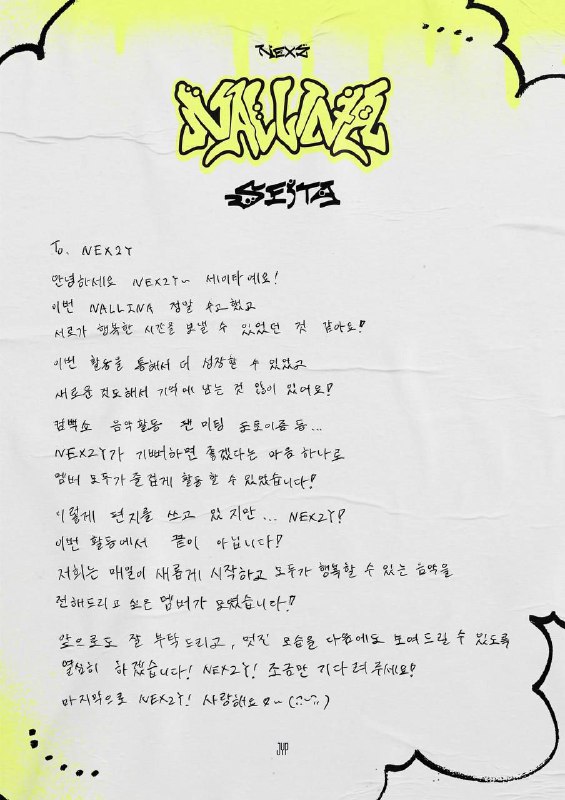 NEXZ
NALLINA
SEITA
To. NEX2Y
안녕하세요 NEX2Y~ 세이타예요!
이번 NALLINA 정말 수고했고
서로가 행복한 시간을 보낼 수 있었던 것 같아요!
이번 활동을 통해서 더 성장할 수 있었고
새로운 것도해서 기억에 남는 것 많이 있어요!
컴백쇼 음악활동 팬 미팅 등등...
NEX2Y가 기뻐하면 좋겠다는 마음 하나로
멤버 모두가 즐겁게 활동 할 수 있었습니다!
이렇게 편지를 쓰고 있지만... NEX2Y!
이번 활동에서 끝이 아닙니다!
저희는 매일이 새롭게 시작하고 모두가 행복할 수 있는 음악을
전해드리고 싶은 멤버가 모였습니다!
앞으로도 잘 부탁드리고, 멋진 모습을 다음에도 보여드릴 수 있도록
열심히 하겠습니다! NEX2Y! 조금만 기다려주세요!
마지막으로 NEX2Y! 사랑해요
JYP